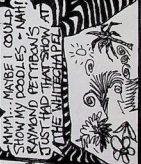 HMM... MAYBE I COULD
SHOW MY DOODLES - NAH!!
RAYMOND PETTIBON'S
JUST HAD THAT SHOW AT